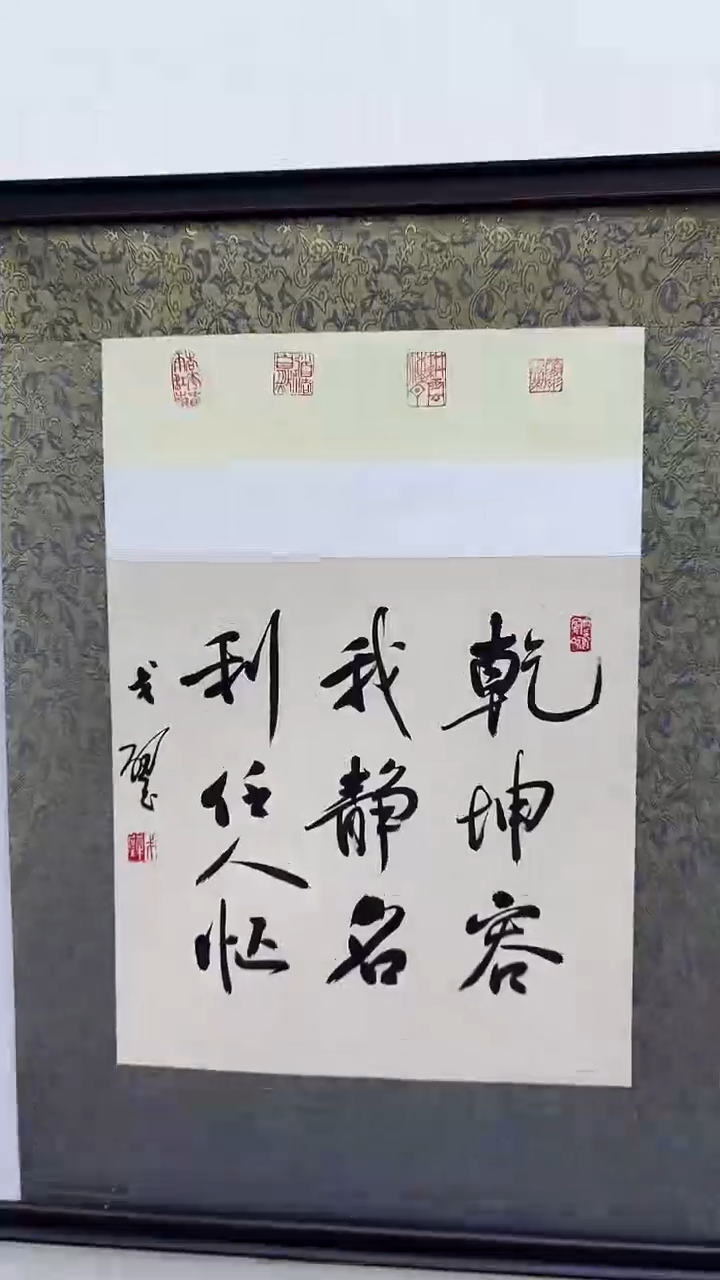 乾坤容
我静名
利任人忙